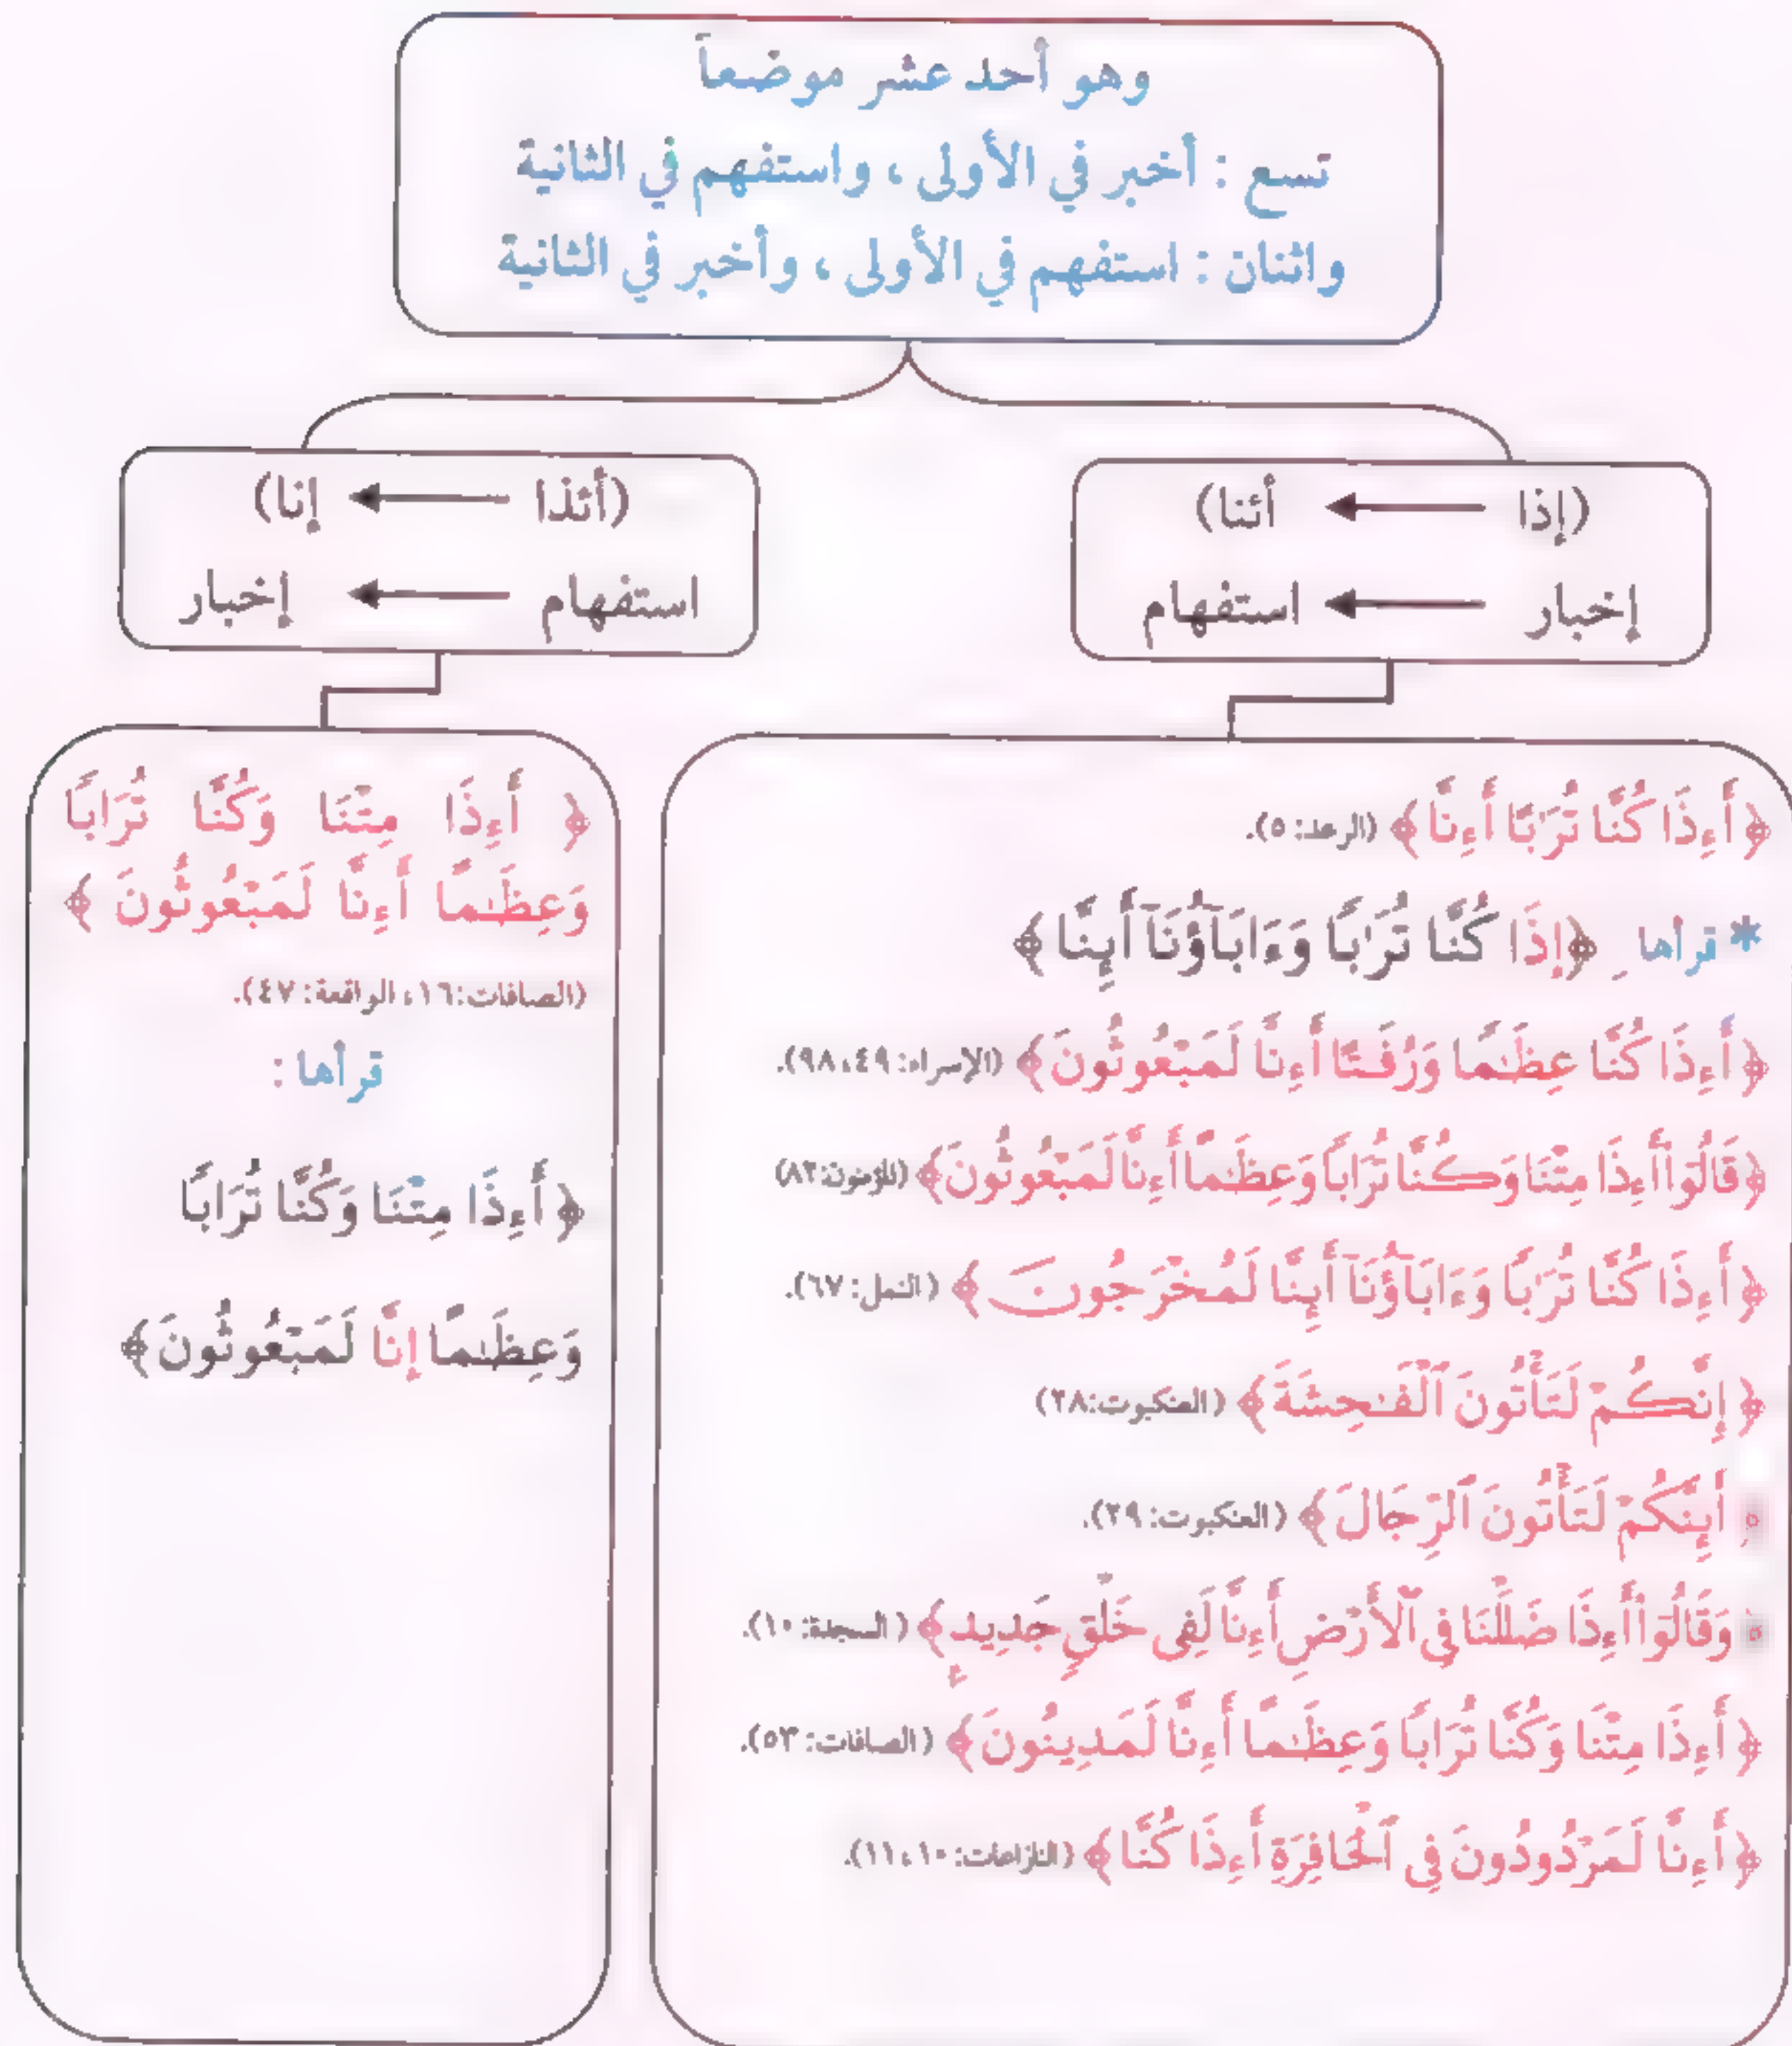 وهو أحد عشر موضعاً
تسع : أخبر في الأولى ، واستفهم في الثانية
واثنان : استفهم في الأولى ، وأخبر في الثانية
(إذا ← أئنا)
إخبار ← استفهام
(أئذا ← إنا)
استفهام ← إخبار
﴿ أَءِذَا كُنَّا تُرَٰبًا أَءِنَّا ﴾ (الرعد: ٥).
* قرأها ﴿إِذَا كُنَّا تُرَٰبًا وَءَابَآؤُنَآ أَئِنَّا ﴾
﴿ أَءِذَا كُنَّا عِظَٰمًا وَرُفَٰتًا أَءِنَّا لَمَبْعُوثُونَ ﴾ (الإسراء: ٤٩، ٩٨).
﴿ قَالُوٓا۟ أَءِذَا مِتْنَا وَكُنَّا تُرَابًا وَعِظَٰمًا أَءِنَّا لَمَبْعُوثُونَ ﴾ (المؤمنون: ٨٢)
﴿ أَءِذَا كُنَّا تُرَٰبًا وَءَابَآؤُنَآ أَئِنَّا لَمُخْرَجُونَ ﴾ (النمل: ٦٧).
﴿ إِنَّكُمْ لَتَأْتُونَ ٱلْفَٰحِشَةَ ﴾ (العنكبوت: ٢٨)
أَئِنَّكُمْ لَتَأْتُونَ ٱلرِّجَالَ ﴾ (العنكبوت: ٢٩).
وَقَالُوٓا۟ أَءِذَا ضَلَلْنَا فِى ٱلْأَرْضِ أَءِنَّا لَفِى خَلْقٍ جَدِيدٍ ﴾ (السجدة: ١٠).
﴿ أَءِذَا مِتْنَا وَكُنَّا تُرَابًا وَعِظَٰمًا أَءِنَّا لَمَدِينُونَ ﴾ (الصافات: ٥٣).
﴿ أَءِنَّا لَمَرْدُودُونَ فِى ٱلْحَافِرَةِ أَءِذَا كُنَّا ﴾ (النازعات: ١٠، ١١).
﴿ أَءِذَا مِتْنَا وَكُنَّا تُرَابًا
وَعِظَٰمًا أَءِنَّا لَمَبْعُوثُونَ ﴾
(الصافات: ١٦، الواقعة: ٤٧).
قرأها :
﴿ أَءِذَا مِتْنَا وَكُنَّا تُرَابًا
وَعِظَٰمًا إِنَّا لَمَبْعُوثُونَ ﴾